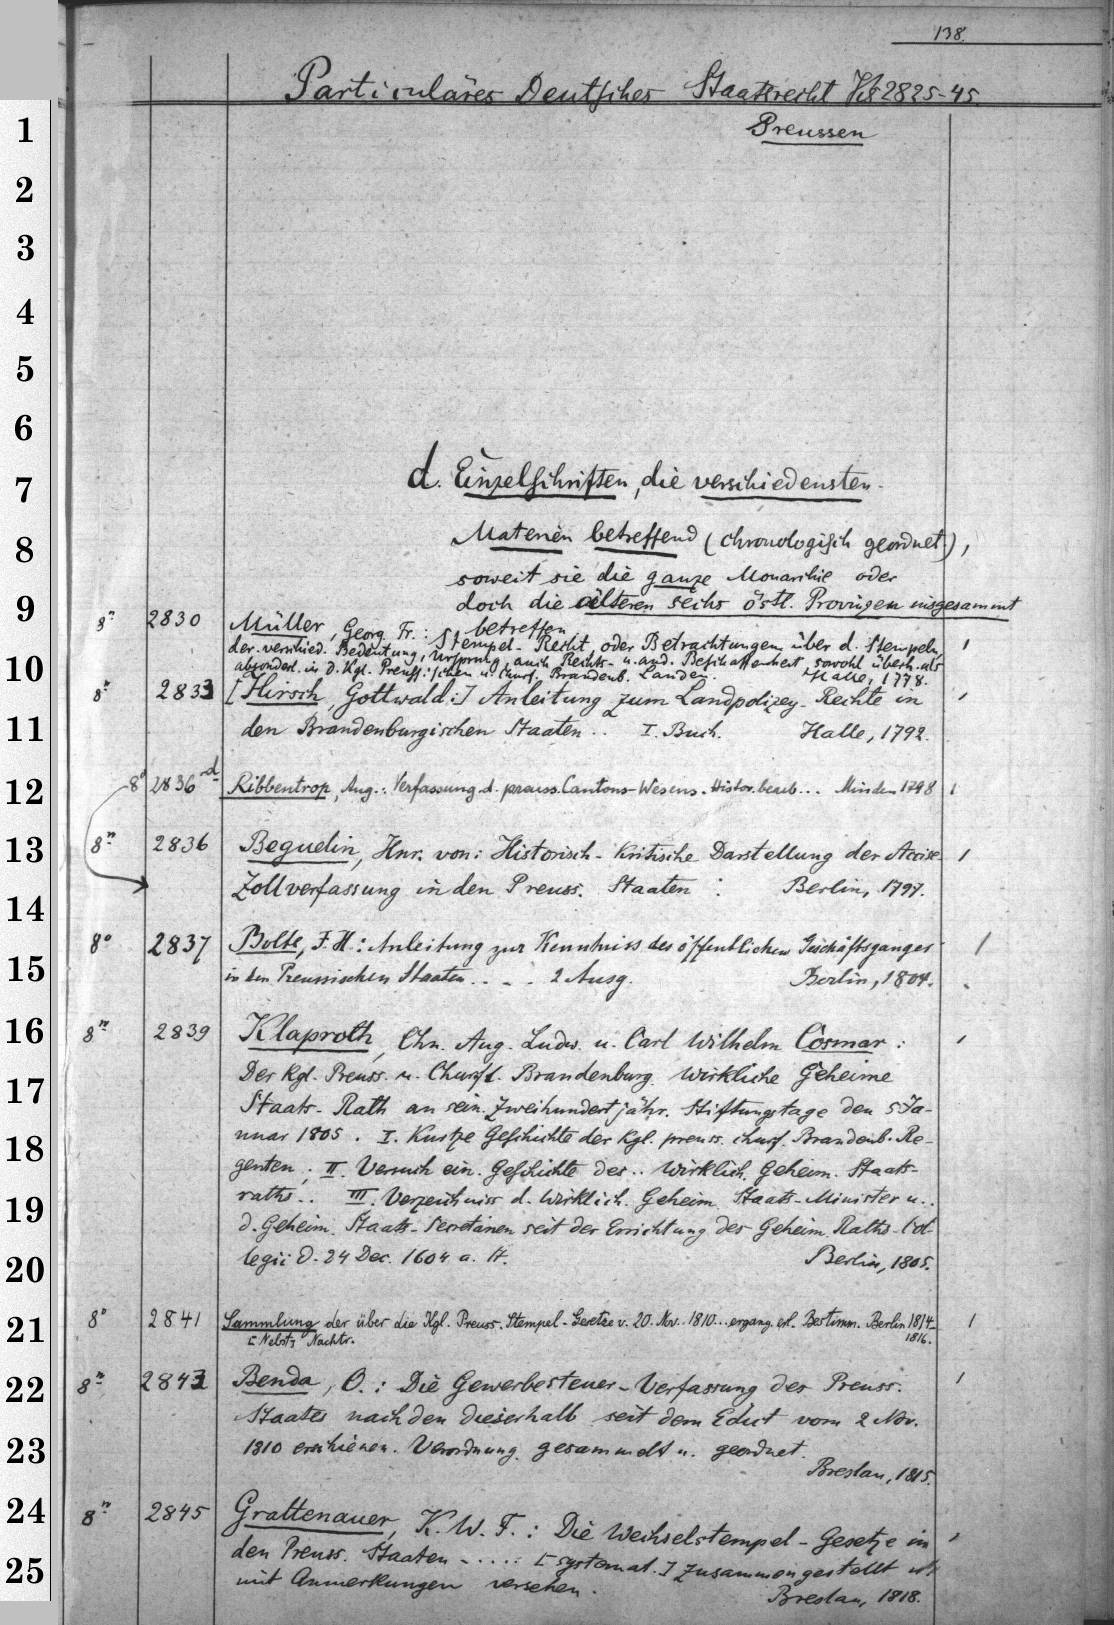 138.
Particuläres Deutsches Staatsrecht 2825-45
Preussen
1
2
3
4
5
6
7
8
9
10
11
12
13
14
15
16
17
18
19
20
21
22
23
24
25
d. Einzelschriften, die verschiedensten
Materien betreffend (chronologisch geordnet),
soweit sie die ganze Monarchie oder
doch die älteren sechs östl. Provinzen insgesammt
betreffen
8º 2830 Müller, Georg Fr.: Stempel-Recht, oder Betrachtungen über d. Stempeln, 1
der verschied. Bedeutung, Ursprung, auch Rechts- u. and. Beschaffenheit, sowohl überh. als
absonderl. in d. Kgl. Preuss:schen u. Churf. Brandenb. Landen. Halle, 1778.
8º 2833 [Hirsch, Gottwald:] Anleitung zum Landpolizey-Rechte in 1
den Brandenburgischen Staaten .. I. Buch. Halle, 1792.
8º 2836d Ribbentrop, Aug.: Verfassung d. preuss. Cantons-Wesens. Histor. bearb... Minden 1798 1
8º 2836 Beguelin, Hnr. von: Historisch-kritische Darstellung der Accise- 1
Zollverfassung in den Preuss. Staaten : Berlin, 1797.
8º 2837 Bolte, F. H.: Anleitung zur Kenntniss des öffentlichen Geschäftsganges 1
in den Preussischen Staaten . . . . 2 Ausg. Berlin, 1804.
8º 2839 Klaproth, Chn. Aug. Ludw. u. Carl Wilhelm Cosmar : 1
Der Kgl. Preuss. u. Churfl. Brandenburg. Wirkliche Geheime
Staats-Rath an sein. zweihundertjähr. Stiftungstage den 5 Ja-
nuar 1805. I. Kurtze Geschichte der Kgl. preuss. churf. Brandenb. Re-
genten; II. Versuch ein. Geschichte des .. Wirklich. Geheim. Staats-
raths .. III. Verzeichniss d. Wirklich. Geheim. Staats-Minister u..
d. Geheim. Staats-Secretänen seit der Errichtung des Geheim. Raths-Col-
legii d. 24 Dec. 1604 a. H. Berlin, 1805.
8º 2841 Sammlung der über die Kgl. Preuss. Stempel-Gesetze v. 20. Nov. 1810... ergang. erl. Bestimm. Berlin 1814- 1
[Nebst] Nachtr. 1816.
8º 2843 Benda, O.: Die Gewerbesteuer-Verfassung des Preuss. 1
Staates nach den dieserhalb seit dem Edict vom 2 Nov.
1810 erschienen. Verordnung. gesammelt u. geordnet.
Breslau, 1815.
8º 2845 Grattenauer, K. W. F.: Die Wechselstempel-Gesetze in 1
den Preuss. Staaten ..... [systemat.] zusammengestellt u.
mit Anmerkungen versehen. Breslau, 1818.